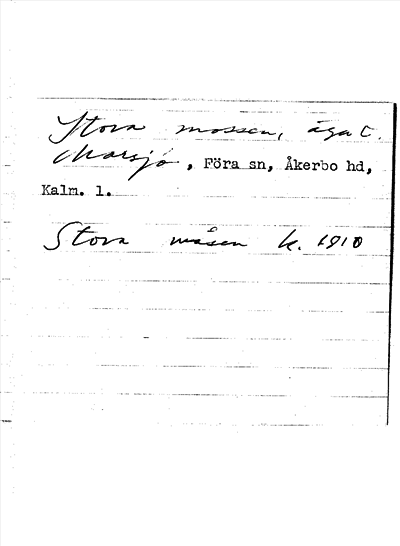 Stora mossen, äga t.
Marsjö, Föra sn, Åkerbo hd,
Kalm. l.
Stora måsen k. 1910